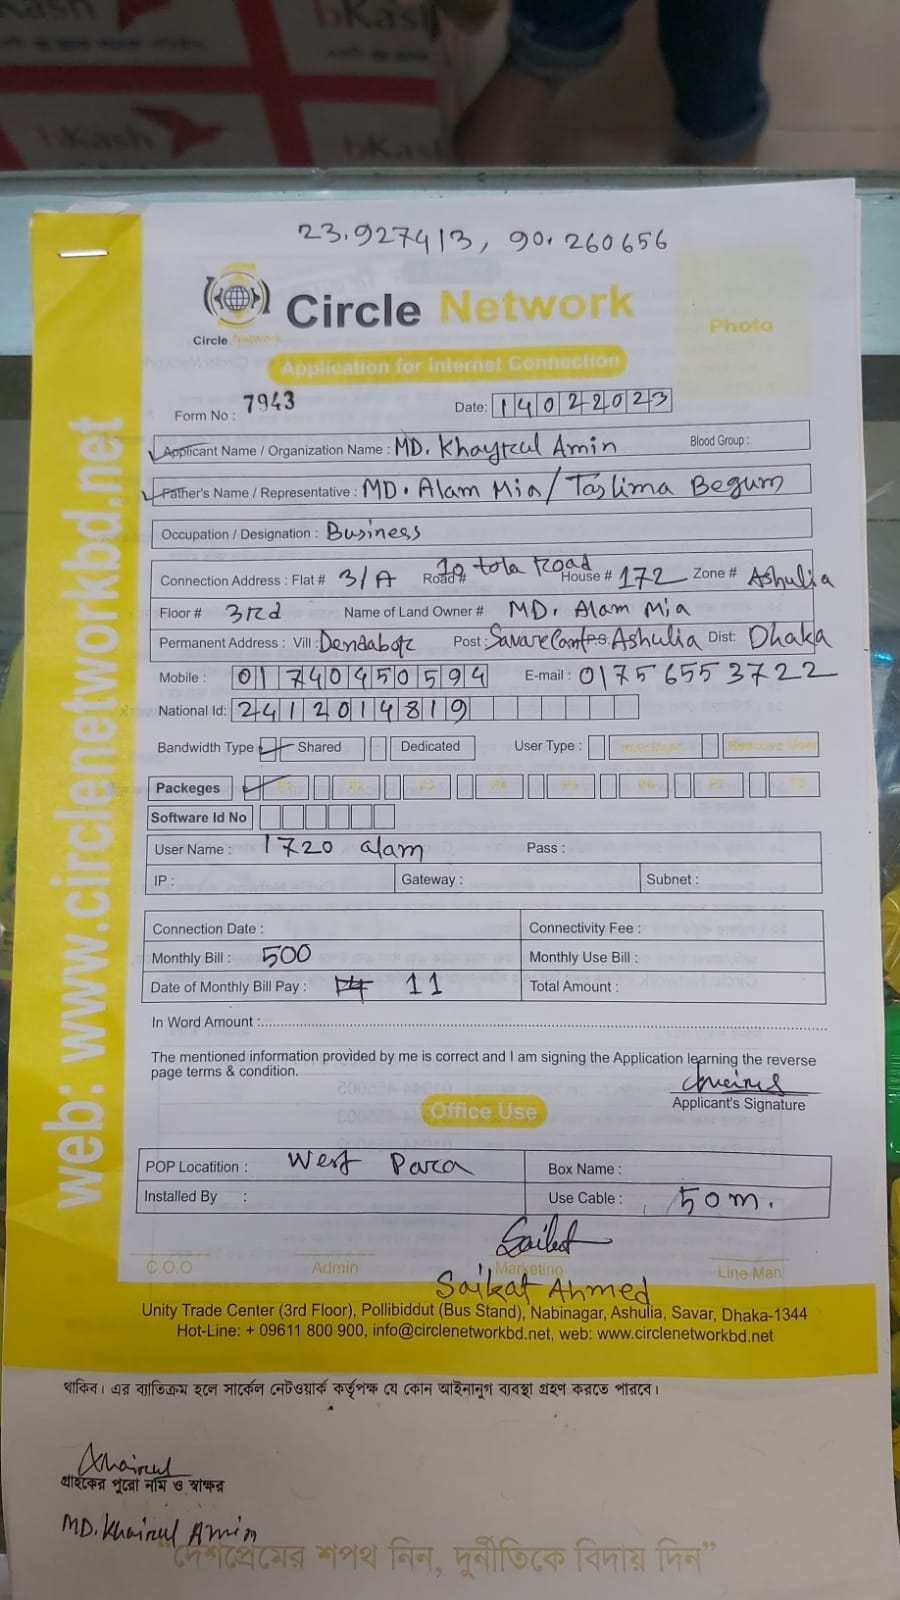 bKash
bKash
bKash
23.927413, 90.260656
Circle Network
Circle Network
Photo
Application for Internet Connection
Form No : 7943
Date: 14022023
Applicant Name / Organization Name : MD. Khayrul Amin Blood Group :
Father's Name / Representative : MD. Alam Mia / Taslima Begum
Occupation / Designation : Business
Connection Address : Flat # 3/A Road # 10 tola Road House # 172 Zone # Ashulia
Floor # 3rd Name of Land Owner # MD. Alam Mia
Permanent Address : Vill : Dendabor Post : Savar Cant PS Ashulia Dist: Dhaka
Mobile : 01740450594 E-mail : 01756553722
National Id: 2412014819
Bandwidth Type Shared Dedicated User Type :
Packeges
Software Id No
User Name : 1720 alam Pass :
IP : Gateway : Subnet :
Connection Date : Connectivity Fee :
Monthly Bill : 500 Monthly Use Bill :
Date of Monthly Bill Pay : 11 Total Amount :
In Word Amount :
The mentioned information provided by me is correct and I am signing the Application learning the reverse
page terms & condition.
Applicant's Signature
Office Use
POP Locatition : West Para Box Name :
Installed By : Use Cable : 50m.
Saikat
C.O.O Admin Marketing Line Man
Saikat Ahmed
Unity Trade Center (3rd Floor), Pollibiddut (Bus Stand), Nabinagar, Ashulia, Savar, Dhaka-1344
Hot-Line: + 09611 800 900, info@circlenetworkbd.net, web: www.circlenetworkbd.net
web: www.circlenetworkbd.net
থাকিব। এর ব্যতিক্রম হলে সার্কেল নেটওয়ার্ক কর্তৃপক্ষ যে কোন আইনানুগ ব্যবস্থা গ্রহণ করতে পারবে।
Khairul
গ্রাহকের পুরো নাম ও স্বাক্ষর
MD. Khairul Amin
“দেশপ্রেমের শপথ নিন, দুর্নীতিকে বিদায় দিন”